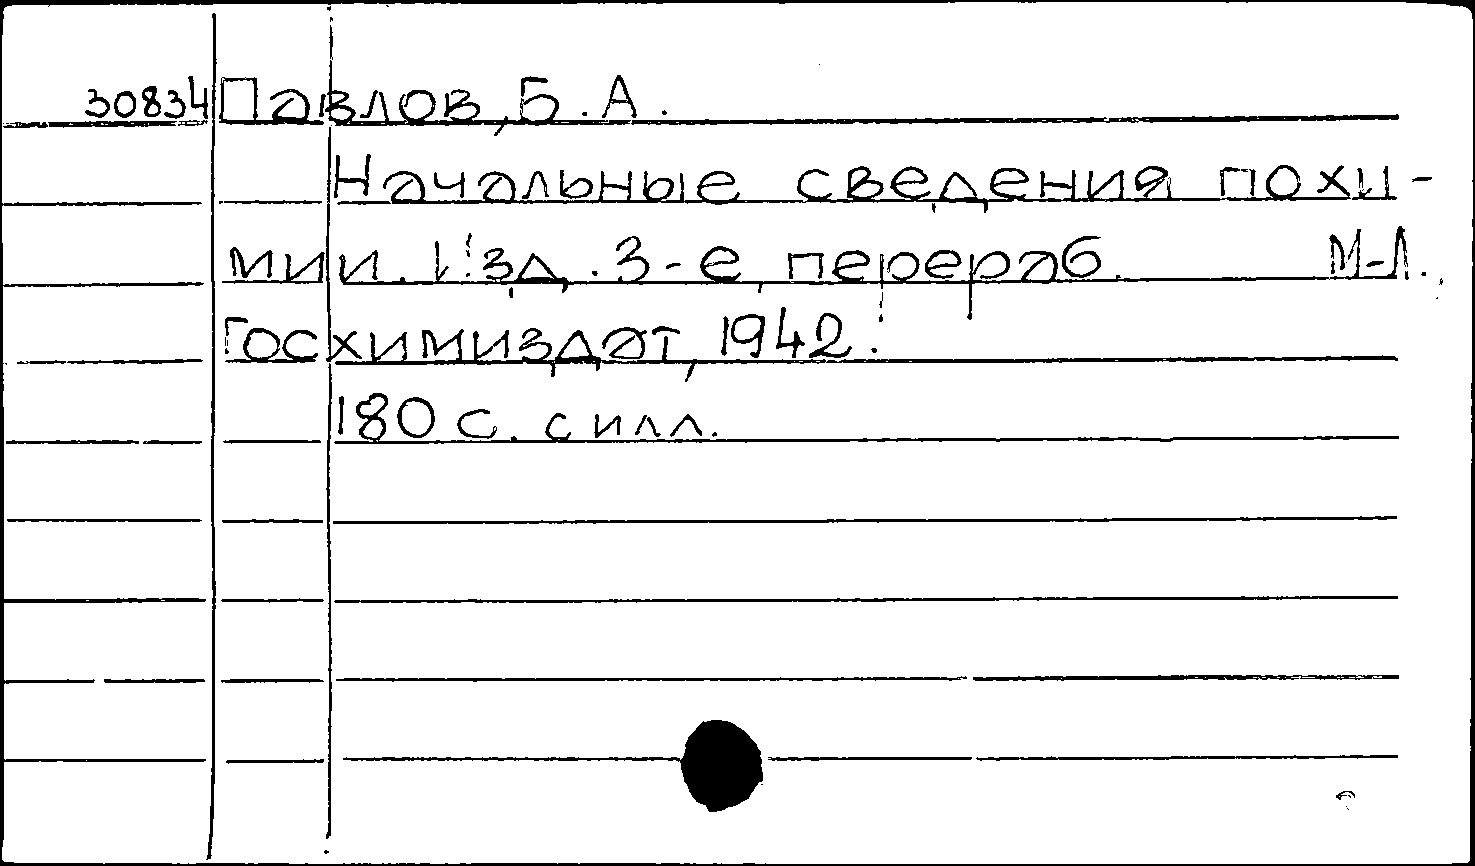 30834 Павлов, Б. А.
Начальные сведения по хи-
мии. Изд. 3-е, перераб. М-Л.,
Госхимиздат, 1942.
180 с. с илл.